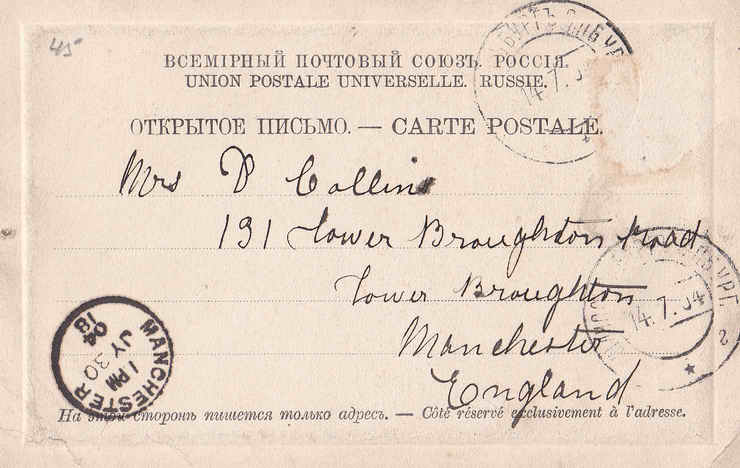 45
ВСЕМІРНЫЙ ПОЧТОВЫЙ СОЮЗЪ. РОССІЯ.
UNION POSTALE UNIVERSELLE. RUSSIE.
14.7.04
ОТКРЫТОЕ ПИСЬМО. — CARTE POSTALE.
Mrs D Collins
191 Lower Broughton Road
Lower Broughton
14.7.04
2
Manchester
England
MANCHESTER
1 PM
JY 30
04
18
На этой сторонѣ пишется только адресъ. — Côté réservé exclusivement à l'adresse.